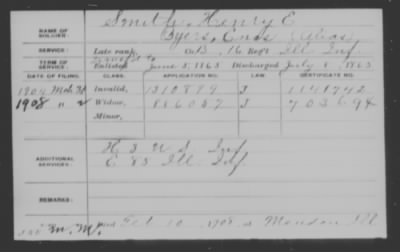 NAME OF SOLDIER: Smith, Henry E.
Byers, Enos (Alias)
SERVICE: Late rank, Co. B, 16 Reg't Ill. Inf.
TERM OF SERVICE: Enlisted June 5, 1863 Discharged July 8, 1865
DATE OF FILING. CLASS. APPLICATION NO. LAW. CERTIFICATE NO.
1904 Invalid, 1310879 J 1141742
1908 " Widow, 886057 J 703694
Minor,
ADDITIONAL SERVICES: H 3 U S Inf
E 83 Ill. Inf.
REMARKS:
Oct. 10, 1908, at Ill